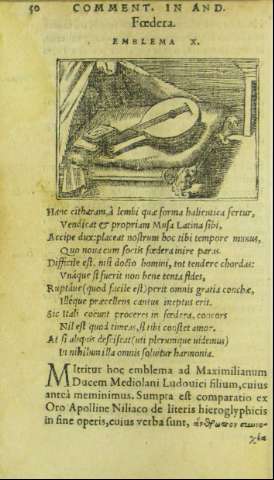 50 COMMENT. IN AND.
Fœdera.
EMBLEMA X.
Hanc citharam, à lembi quæ forma halieutica fertur,
Vendicat & propriam Musa Latina sibi,
Accipe dux: placeat nostrum hoc tibi tempore munus,
Quo noua cum socijs fœdera inire paras.
Difficile est, nisi docto homini, tot tendere chordas:
Vnáque si fuerit non bene tenta fides,
Ruptáue (quod facile est) perit omnis gratia conchæ,
Illéque præcellens cantus ineptus erit.
Sic Itali coëunt proceres in fœdera, concors
Nil est quod timeas, si tibi constet amor.
At si aliquis desciscat (uti plerumque videmus)
In nihilum illa omnis soluitur harmonia.
MIttitur hoc emblema ad Maximilianum
Ducem Mediolani Ludouici filium, cuius
anteà meminimus. Sumpta est comparatio ex
Oro Apolline Niliaco de literis hieroglyphicis
in fine operis, cuius verba sunt, ἄνθρωπον